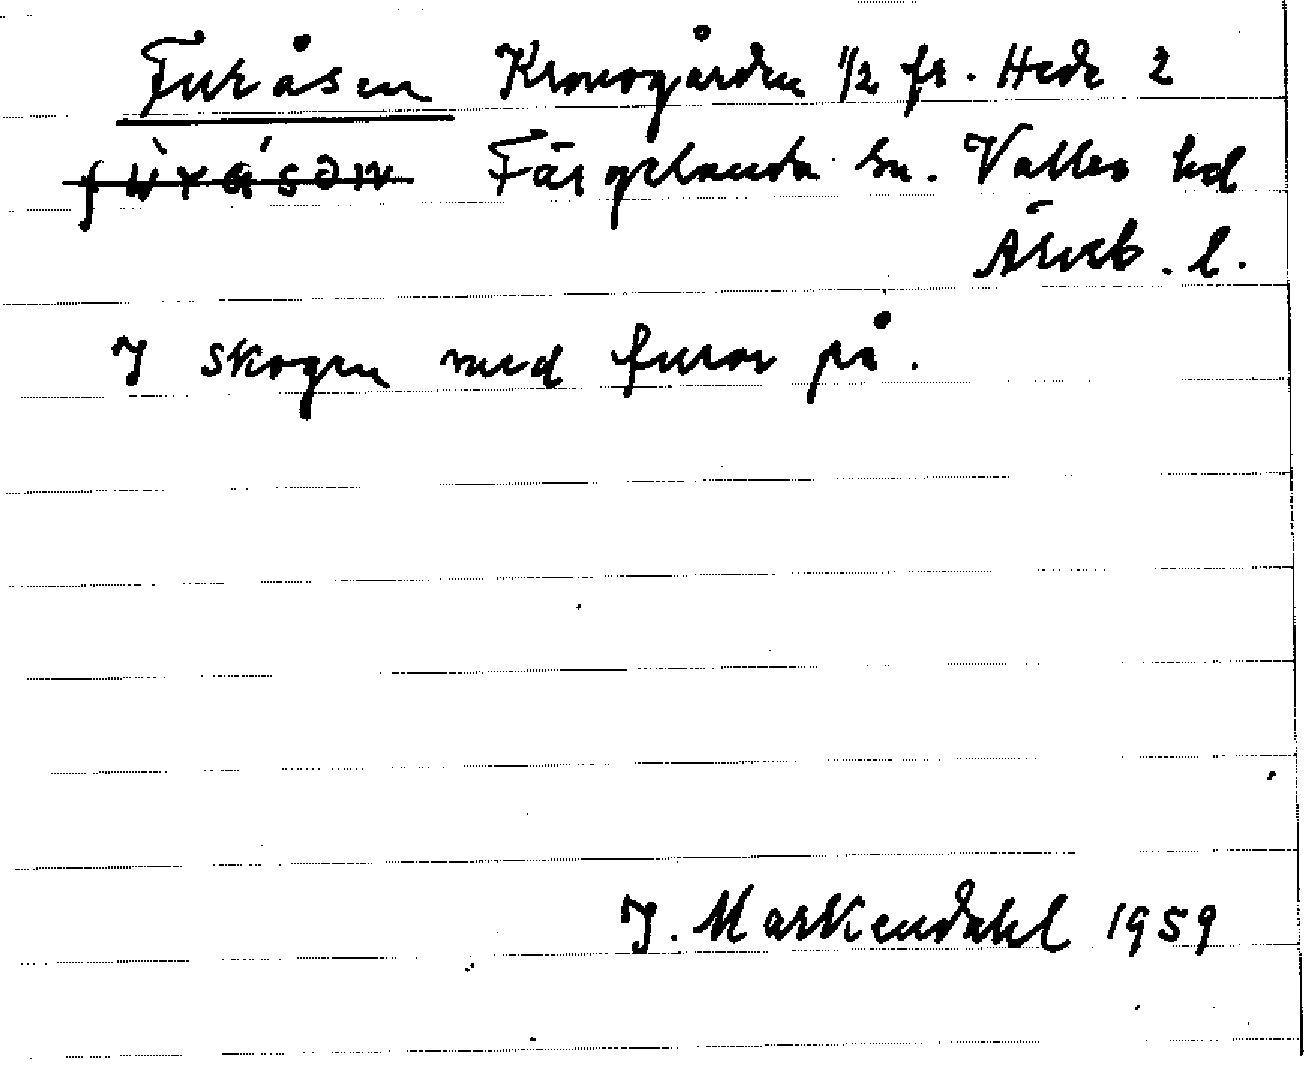 Furåsen Kronogården 1/2 fr. Hede 2
fùråsən Färgelanda sn. Valbo hd
Älvsb. l.
I skogen med furor på.
J. Markendahl 1959